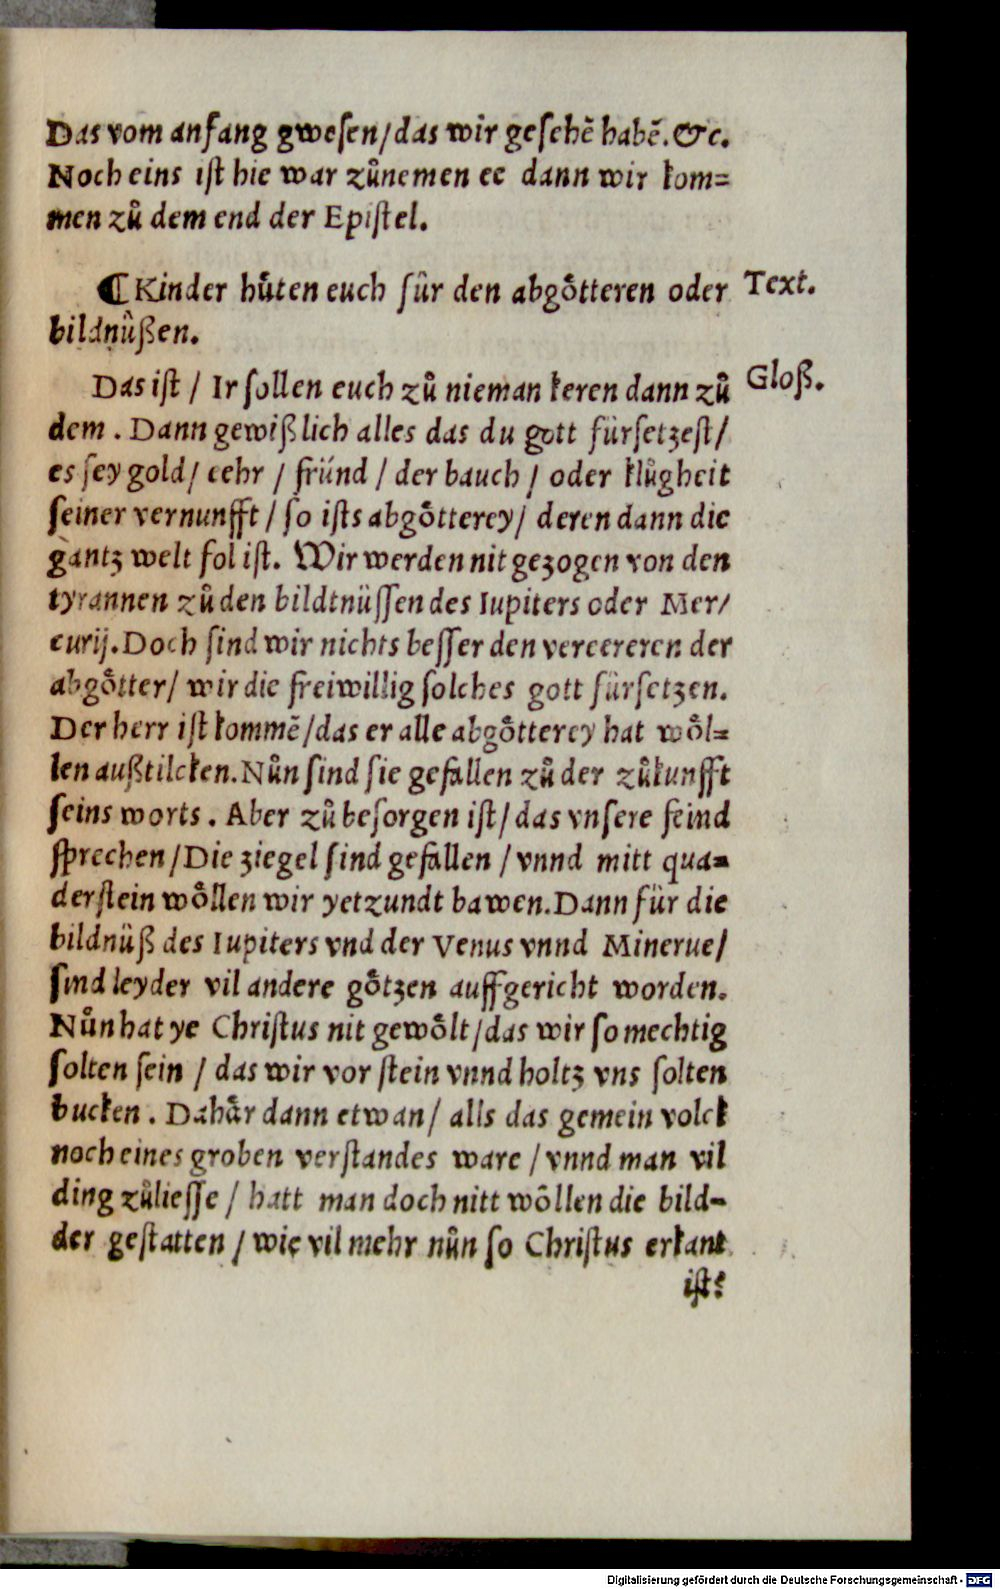 Das vom anfang gwesen/das wir gesehē habē.&c.
Noch eins ist hie war zůnemen ee dann wir kom=
men zů dem end der Epistel.
¶ Kinder hůten euch für den abgǒtteren oder Text.
bildnüßen.
Das ist / Ir sollen euch zů nieman keren dann zů Gloß.
dem . Dann gewißlich alles das du gott fürsetzest/
es sey gold/ eehr / fründ / der bauch / oder klůgheit
seiner vernunfft / so ists abgǒtterey/ deren dann die
gantz welt fol ist. Wir werden nit gezogen von den
tyrannen zů den bildtnüssen des Iupiters oder Mer/
curij. Doch sind wir nichts besser den vereereren der
abgǒtter/ wir die freiwillig solches gott fürsetzen.
Der herr ist kommē/das er alle abgǒtterey hat wǒl=
len außtilcken. Nůn sind sie gefallen zů der zůkunfft
seins worts . Aber zů besorgen ist/ das vnsere feind
sprechen/Die ziegel sind gefallen / vnnd mitt qua=
derstein wǒllen wir yetzundt bawen. Dann für die
bildnüß des Iupiters vnd der Venus vnnd Minerue/
sind leyder vil andere gǒtzen auffgericht worden.
Nůn hat ye Christus nit gewǒlt/das wir so mechtig
solten sein / das wir vor stein vnnd holtz vns solten
bucken . Dahår dann etwan/ alls das gemein volck
noch eines groben verstandes ware / vnnd man vil
ding zůliesse / hatt man doch nitt wǒllen die bild=
der gestatten / wie vil mehr nůn so Christus erkant
ist?
Digitalisierung gefördert durch die Deutsche Forschungsgemeinschaft - DFG